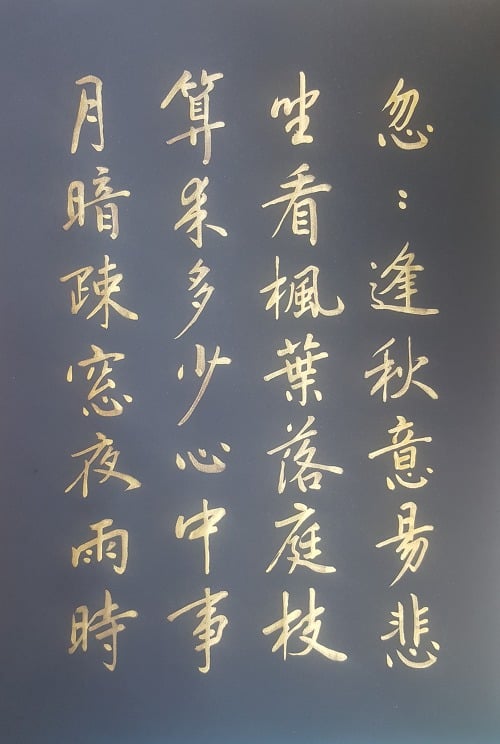 忽：逢秋意易悲
坐看楓葉落庭枝
算来多少心中事
月暗疎窓夜雨時